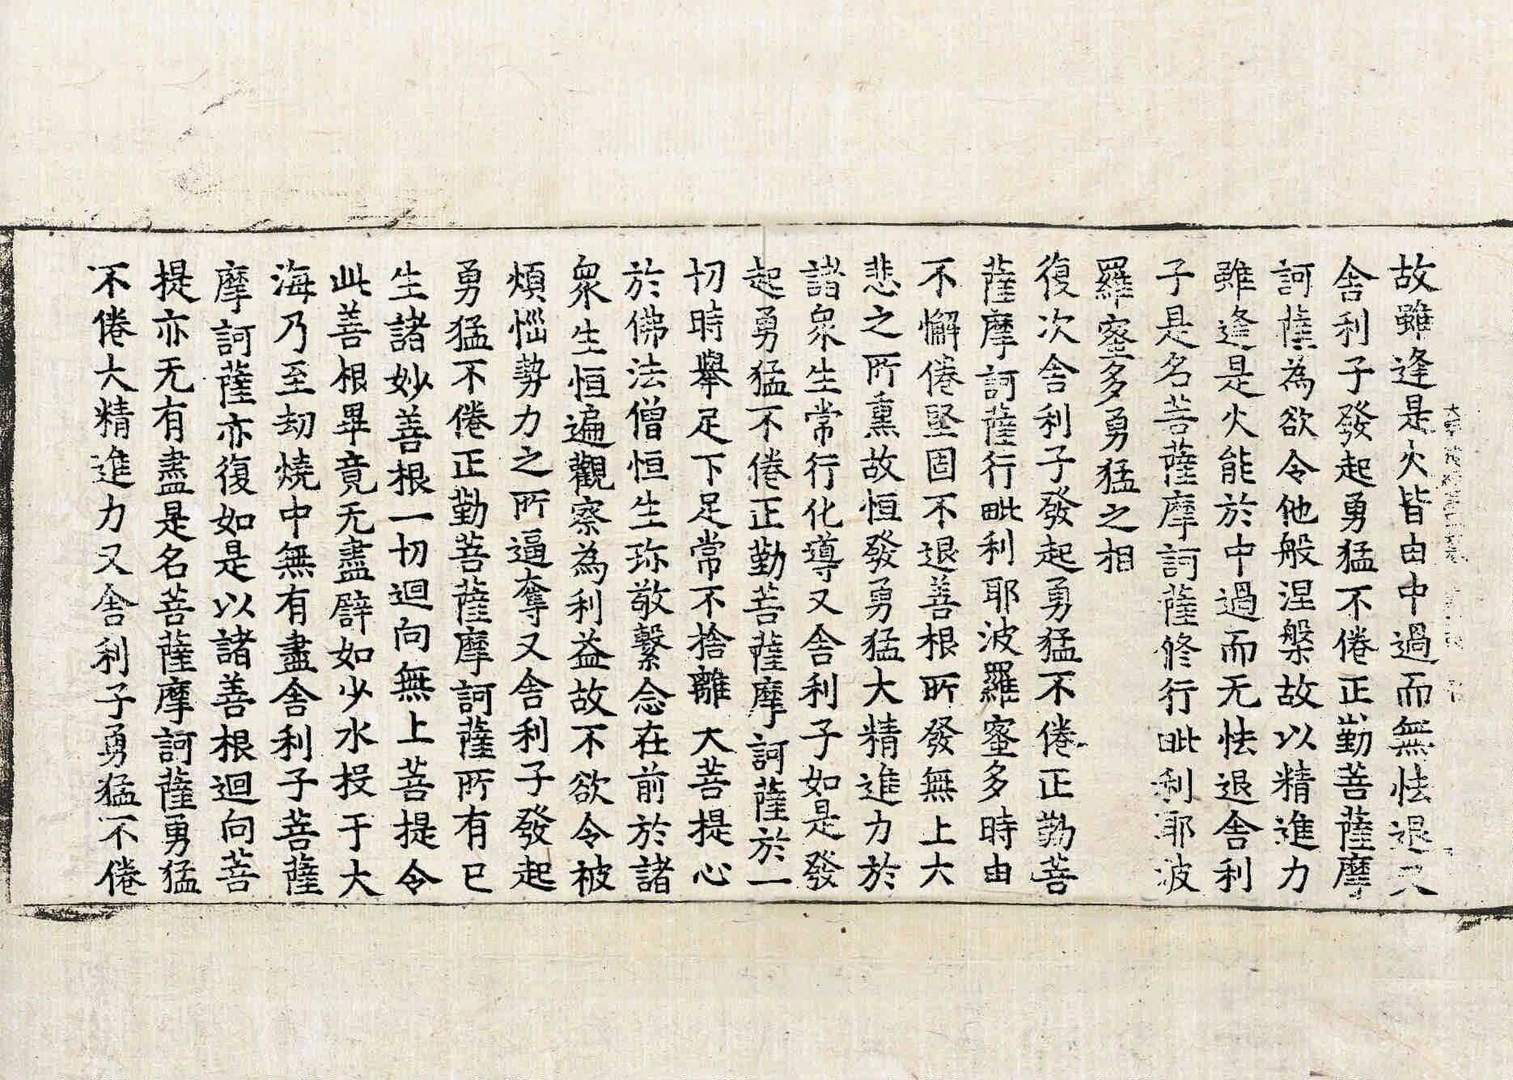 故雖逢是火皆由中過而無怯退又
舍利子發起勇猛不倦正勤菩薩摩
訶薩為欲令他般涅槃故以精進力
雖逢是火能於中過而无怯退舍利
子是名菩薩摩訶薩修行毗利耶波
羅蜜多勇猛之相
復次舍利子發起勇猛不倦正勤菩
薩摩訶薩行毗利耶波羅蜜多時由
不懈倦堅固不退善根所發無上大
悲之所熏故恒發勇猛大精進力於
諸衆生常行化導又舍利子如是發
起勇猛不倦正勤菩薩摩訶薩於一
切時舉足下足常不捨離大菩提心
於佛法僧恒生珎敬繫念在前於諸
衆生恒遍觀察為利益故不欲令被
煩惱勢力之所逼奪又舍利子發起
勇猛不倦正勤菩薩摩訶薩所有已
生諸妙善根一切迴向無上菩提令
此善根畢竟无盡譬如少水投于大
海乃至劫燒中無有盡舍利子菩薩
摩訶薩亦復如是以諸善根迴向菩
提亦无有盡是名菩薩摩訶薩勇猛
不倦大精進力又舍利子勇猛不倦